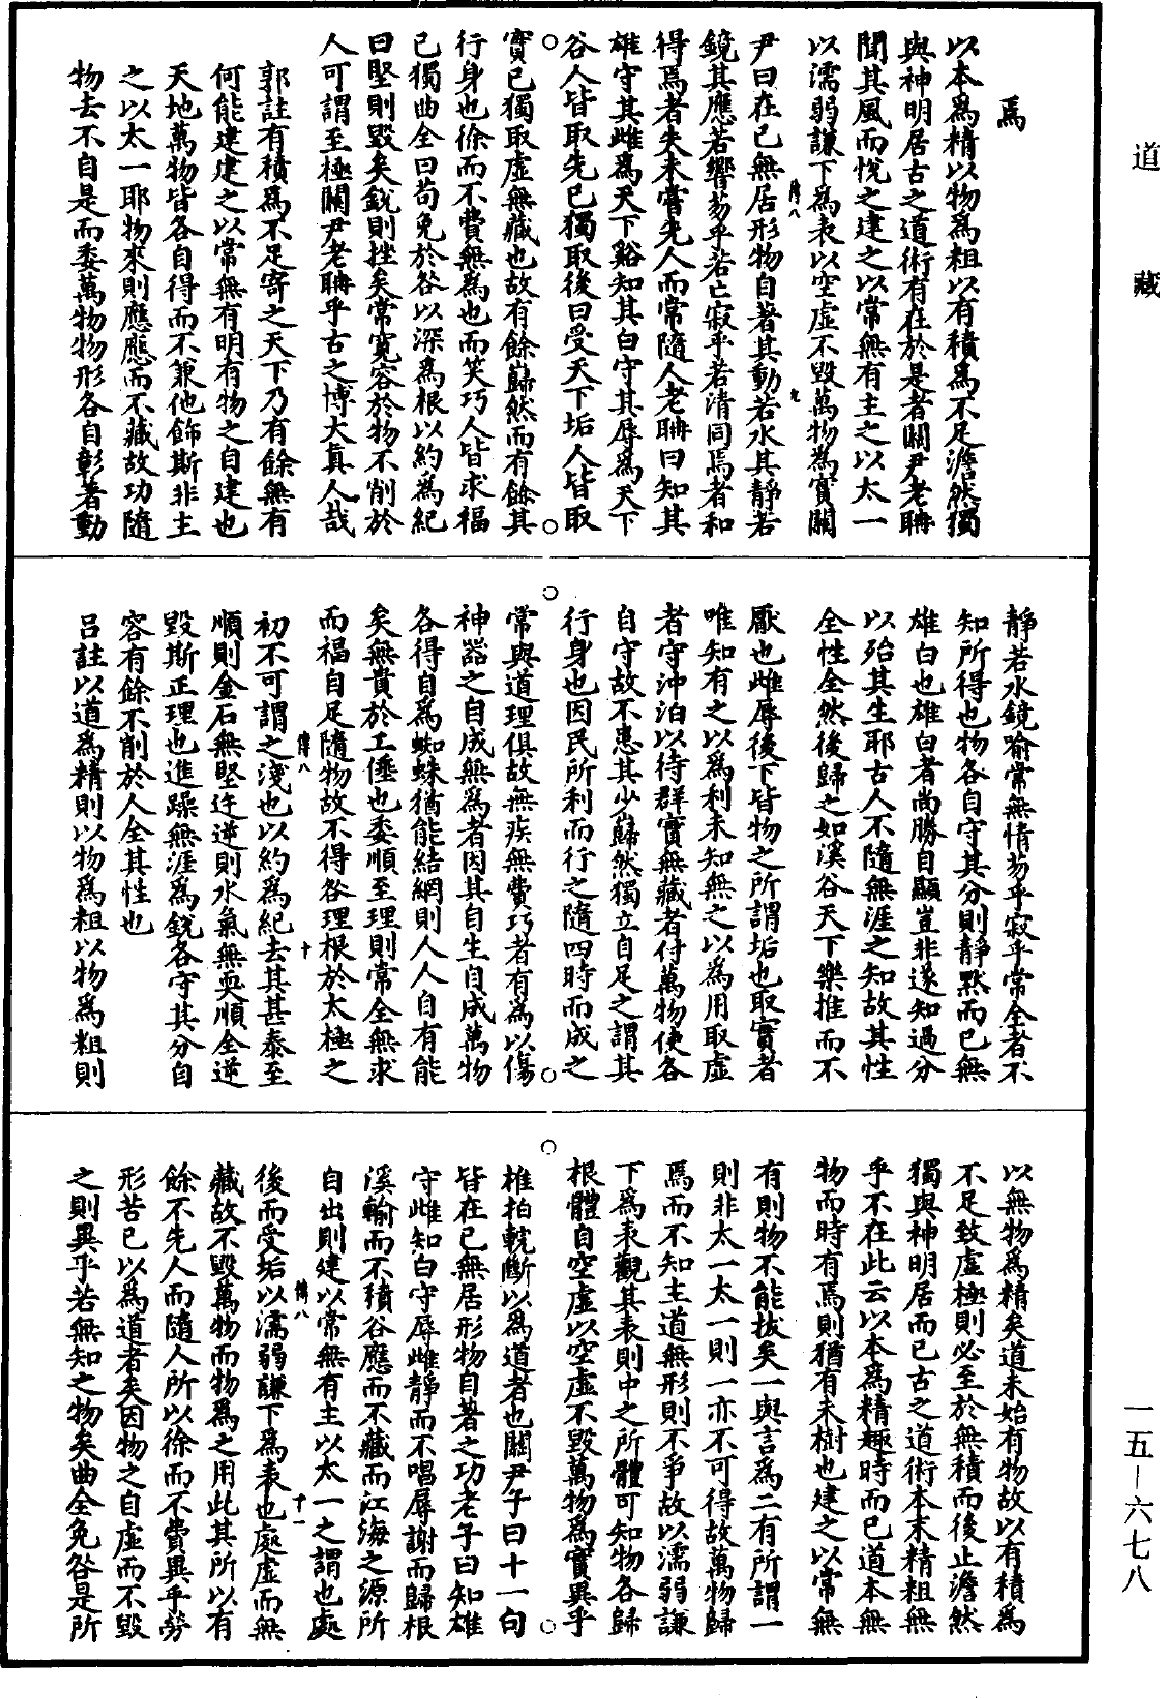 道藏
焉
以本爲精以物爲粗以有積爲不足澹然獨
與神明居古之道術有在於是者關尹老聃
聞其風而悅之建之以常無有主之以太一
以濡弱謙下爲表以空虛不毀萬物爲實關
尹曰在己無居形物自著其動若水其靜若
鏡其應若響芴乎若亡寂乎若清同焉者和
得焉者失未嘗先人而常隨人老聃曰知其
雄守其雌爲天下谿知其白守其辱爲天下
谷人皆取先己獨取後曰受天下垢人皆取
實己獨取虛無藏也故有餘巋然而有餘其
行身也徐而不費無爲也而笑巧人皆求福
己獨曲全曰苟免於咎以深爲根以約爲紀
曰堅則毀矣銳則挫矣常寬容於物不削於
人可謂至極關尹老聃乎古之博大真人哉
郭註有積爲不足寄之天下乃有餘無有
何能建建之以常無有明有物之自建也
天地萬物皆各自得而不兼他飾斯非主
之以太一耶物來則應應而不藏故功隨
物去不自是而委萬物物形各自彰著動
靜若水鏡喻常無情芴乎寂乎常全者不
知所得也物各自守其分則靜黙而已無
雄白也雄白者尚勝自顯豈非遂知過分
以殆其生耶古人不隨無涯之知故其性
全性全然後歸之如溪谷天下樂推而不
厭也雌辱後下皆物之所謂垢也取實者
唯知有之以爲利未知無之以爲用取虛
者守沖泊以待群實無藏者付萬物使各
自守故不患其少巋然獨立自足之謂其
行身也因民所利而行之隨四時而成之
常與道理俱故無疾無費巧者有爲以傷
神器之自成無爲者因其自生自成萬物
各得自爲蜘蛛猶能結網則人人自有能
矣無貴於工倕也委順至理則常全無求
而福自足隨物故不得咎理根於太極之
初不可謂之淺也以約爲紀去其甚泰至
順則金石無堅迕逆則水氣無耎順全逆
毀斯正理也進躁無涯爲銳各守其分自
容有餘不削於人全其性也
呂註以道爲精則以物爲粗以物爲粗則
以無物爲精矣道未始有物故以有積爲
不足致虛極則必至於無積而後止澹然
獨與神明居而已古之道術本末精粗無
乎不在此云以本爲精趣時而已道本無
物而時有焉則猶有未樹也建之以常無
有則物不能拔矣一與言爲二有所謂一
則非太一太一則一亦不可得故萬物歸
焉而不知主道無形則不爭故以濡弱謙
下爲表觀其表則中之所體可知物各歸
根體自空虛以空虛不毀萬物爲實異乎
椎拍輐斷以爲道者也關尹子曰十一句
皆在己無居形物自著之功老子曰知雄
守雌知白守辱雌靜而不唱辱謝而歸根
溪輸而不積谷應而不藏而江海之源所
自出則建以常無有主以太一之謂也處
後而受垢以濡弱謙下爲表也處虛而無
藏故不毀萬物而物爲之用此其所以有
餘不先人而隨人所以徐而不費異乎勞
形苦己以爲道者矣因物之自虛而不毀
之則異乎若無知之物矣曲全免咎是所
一五—六七八